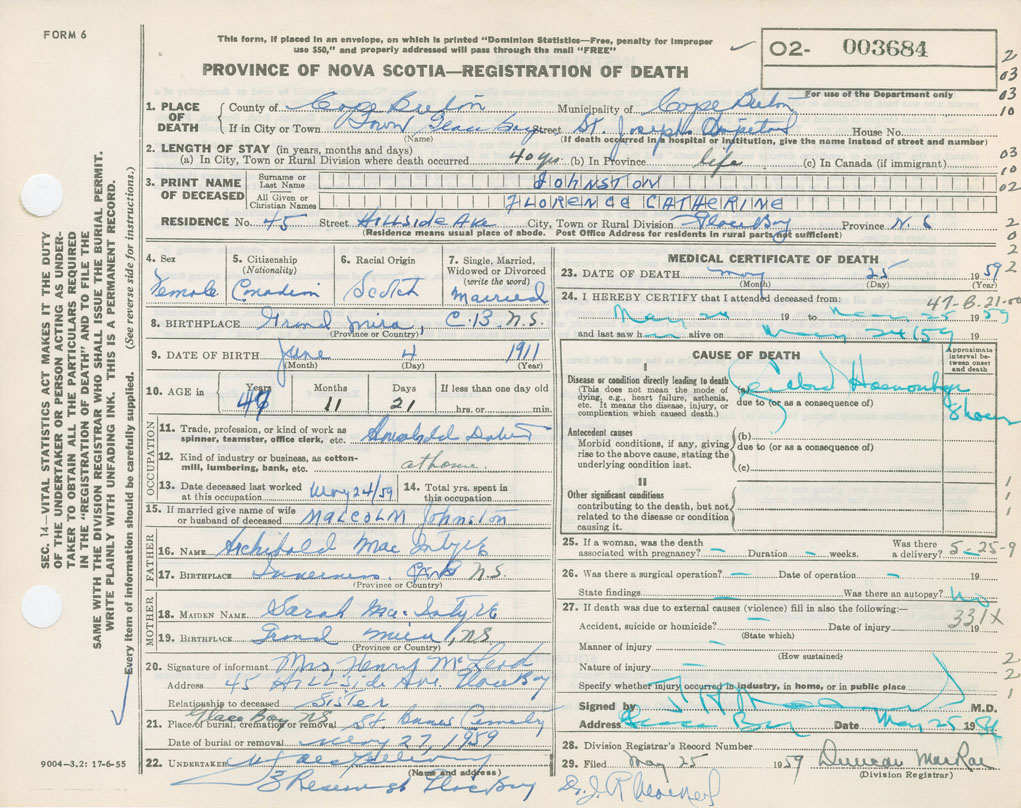 FORM 6
This form, if placed in an envelope, on which is printed "Dominion Statistics—Free, penalty for improper
use $50," and properly addressed will pass through the mail "FREE"
O2- 003684
For use of the Department only
PROVINCE OF NOVA SCOTIA—REGISTRATION OF DEATH
2
03
03
10
03
10
02
2
0
2
2
1
1
1
2
2
1
SEC. 14—VITAL STATISTICS ACT MAKES IT THE DUTY
OF THE UNDERTAKER OR PERSON ACTING AS UNDER-
TAKER TO OBTAIN ALL THE PARTICULARS REQUIRED
IN THE "REGISTRATION OF DEATH" AND TO FILE THE
SAME WITH THE DIVISION REGISTRAR WHO SHALL ISSUE THE BURIAL PERMIT.
WRITE PLAINLY WITH UNFADING INK. THIS IS A PERMANENT RECORD.
Every item of information should be carefully supplied. (See reverse side for instructions.)
1. PLACE OF DEATH County of Cape Breton Municipality of Cape Breton
If in City or Town Town Glace Bay Street St. Josephs Hospital House No.
(Name) (If death occurred in a hospital or institution, give the name instead of street and number)
2. LENGTH OF STAY (in years, months and days)
(a) In City, Town or Rural Division where death occurred 40 yrs (b) In Province life (c) In Canada (if immigrant)
3. PRINT NAME OF DECEASED Surname or Last Name JOHNSTON
All Given or Christian Names FLORENCE CATHERINE
RESIDENCE No. 45 Street Hillside Ave City, Town or Rural Division Glace Bay Province N.S
(Residence means usual place of abode. Post Office Address for residents in rural parts not sufficient)
4. Sex Female
5. Citizenship (Nationality) Canadian
6. Racial Origin Scotch
7. Single, Married, Widowed or Divorced (write the word) Married
8. BIRTHPLACE Grand Mira, C.B. N.S.
(Province or Country)
9. DATE OF BIRTH June 4 1911
(Month) (Day) (Year)
10. AGE in Years 47 Months 11 Days 21 If less than one day old
hrs. or min.
OCCUPATION
11. Trade, profession, or kind of work as spinner, teamster, office clerk, etc. Household Duties
12. Kind of industry or business, as cotton-mill, lumbering, bank, etc. at home.
13. Date deceased last worked at this occupation May 24/59
14. Total yrs. spent in this occupation
15. If married give name of wife or husband of deceased Malcolm Johnston
FATHER
16. NAME Archibald Mac Intyre
17. BIRTHPLACE Inverness C.B. N.S.
(Province or Country)
MOTHER
18. MAIDEN NAME Sarah Mac Intyre
19. BIRTHPLACE Grand Mira, NS
(Province or Country)
20. Signature of informant Mrs Henry McLeod
Address 45 Hillside Ave. Glace Bay
Relationship to deceased Sister
21. Place of burial, cremation or removal Glace Bay NS St Annes Cemetery
Date of burial or removal May 27, 1959
22. UNDERTAKER
(Name and address)
Glace Bay
9004—3.2: 17-6-55
MEDICAL CERTIFICATE OF DEATH
23. DATE OF DEATH May 25 1959
(Month) (Day) (Year)
24. I HEREBY CERTIFY that I attended deceased from: 47-B-21-00
May 24 19 to May 25 1959
and last saw h alive on May 24/59 19
CAUSE OF DEATH
Approximate interval between onset and death
I
Disease or condition directly leading to death
(This does not mean the mode of dying, e.g., heart failure, asthenia, etc. It means the disease, injury, or complication which caused death.)
(a) Cerebral Haemorrhage
due to (or as a consequence of)
Antecedent causes
Morbid conditions, if any, giving rise to the above cause, stating the underlying condition last.
(b)
due to (or as a consequence of)
(c)
II
Other significant conditions
contributing to the death, but not related to the disease or condition causing it.
25. If a woman, was the death associated with pregnancy? – Duration – weeks. Was there a delivery? 5-25-9
26. Was there a surgical operation? – Date of operation –
State findings – Was there an autopsy? No
27. If death was due to external causes (violence) fill in also the following:—
331X
Accident, suicide or homicide? – Date of injury 19
(State which)
Manner of injury –
(How sustained)
Nature of injury –
Specify whether injury occurred in industry, in home, or in public place
Signed by M.D.
Address Glace Bay Date May 25 1959
28. Division Registrar's Record Number
29. Filed May 25 1959 Duncan MacRae
(Division Registrar)
Dr. J. R.